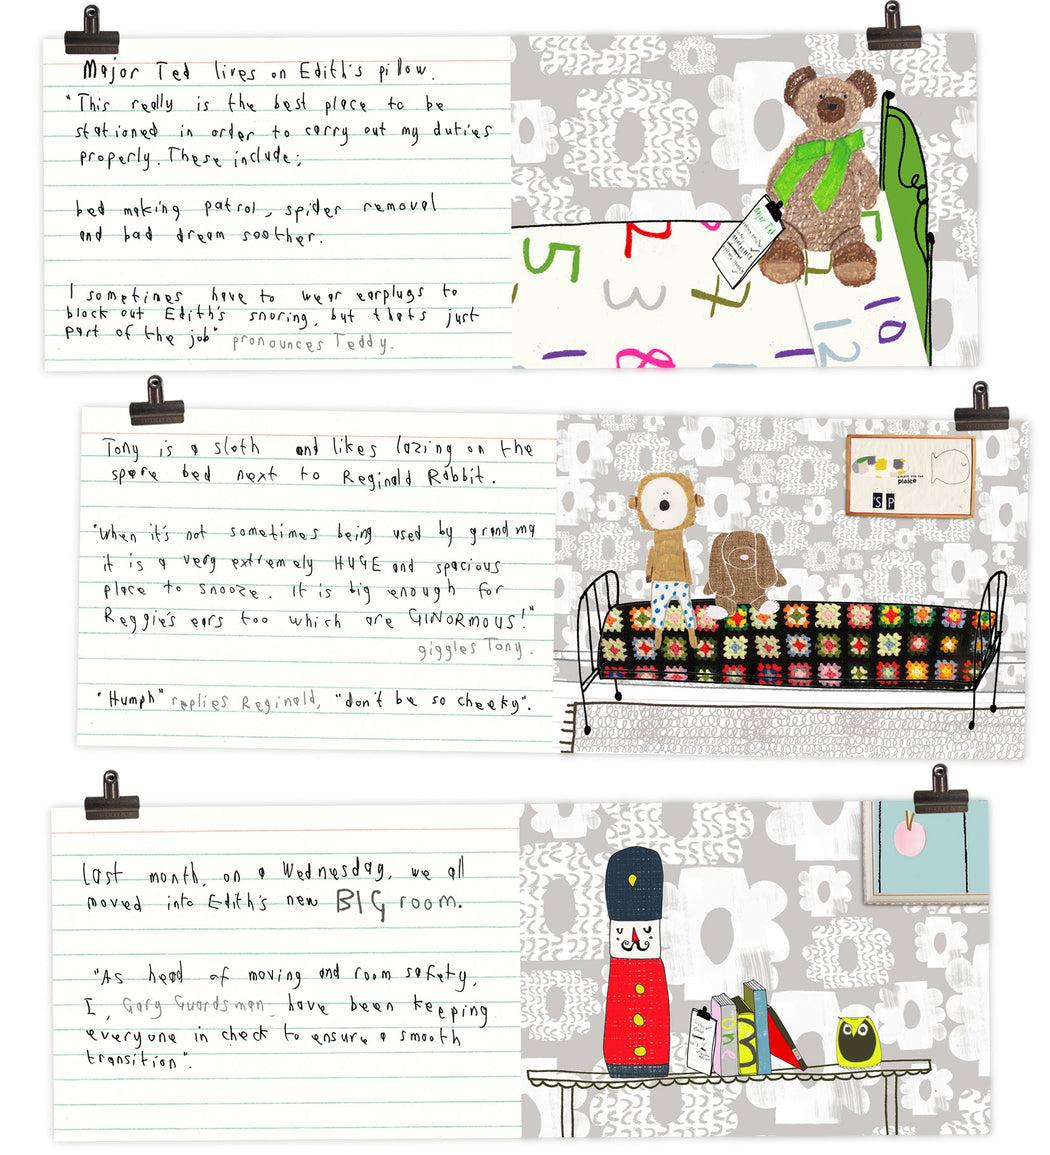 Major Ted lives on Edith's pillow.
"This really is the best place to be
stationed in order to carry out my duties
properly. These include;
bed making patrol, spider removal
and bad dream soother.
I sometimes have to wear earplugs to
block out Edith's snoring, but thats just
part of the job" pronounces Teddy.
Major Ted
5 2 3 7 8 10 12
Tony is a sloth and likes lazing on the
spare bed next to Reginald Rabbit.
"When it's not sometimes being used by grandma
it is a very extremely HUGE and spacious
place to snooze. It is big enough for
Reggie's ears too which are GINORMOUS!"
giggles Tony.
"Humph" replies Reginald, "don't be so cheeky".
plaice
S P
Last month, on a Wednesday, we all
moved into Edith's new BIG room.
"As head of moving and room safety,
I, Gary Guardsman, have been keeping
everyone in check to ensure a smooth
transition".
one
3